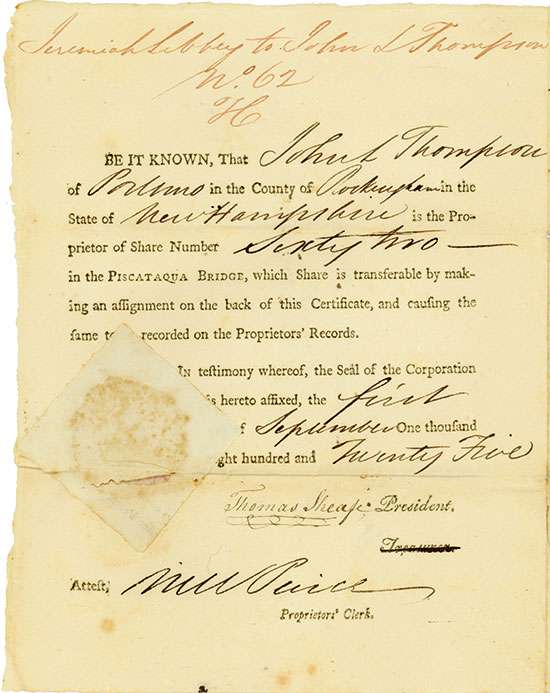 Jeremiah Libbey to John L Thompson
No. 62
H
BE IT KNOWN, That John L Thompson
of Portsmo in the County of Rockingham in the
State of New Hampshire is the Pro-
prietor of Share Number Sixty two
in the PISCATAQUA BRIDGE, which Share is transferable by mak-
ing an aſſignment on the back of this Certificate, and cauſing the
ſame to recorded on the Proprietors' Records.
IN teſtimony whereof, the Seal of the Corporation
is hereto affixed, the first
f September One thouſand
ght hundred and Twenty Five
Thomas Sheafe Preſident.
Treaſurer.
Atteſt,
Peirce
Proprietors' Clerk.